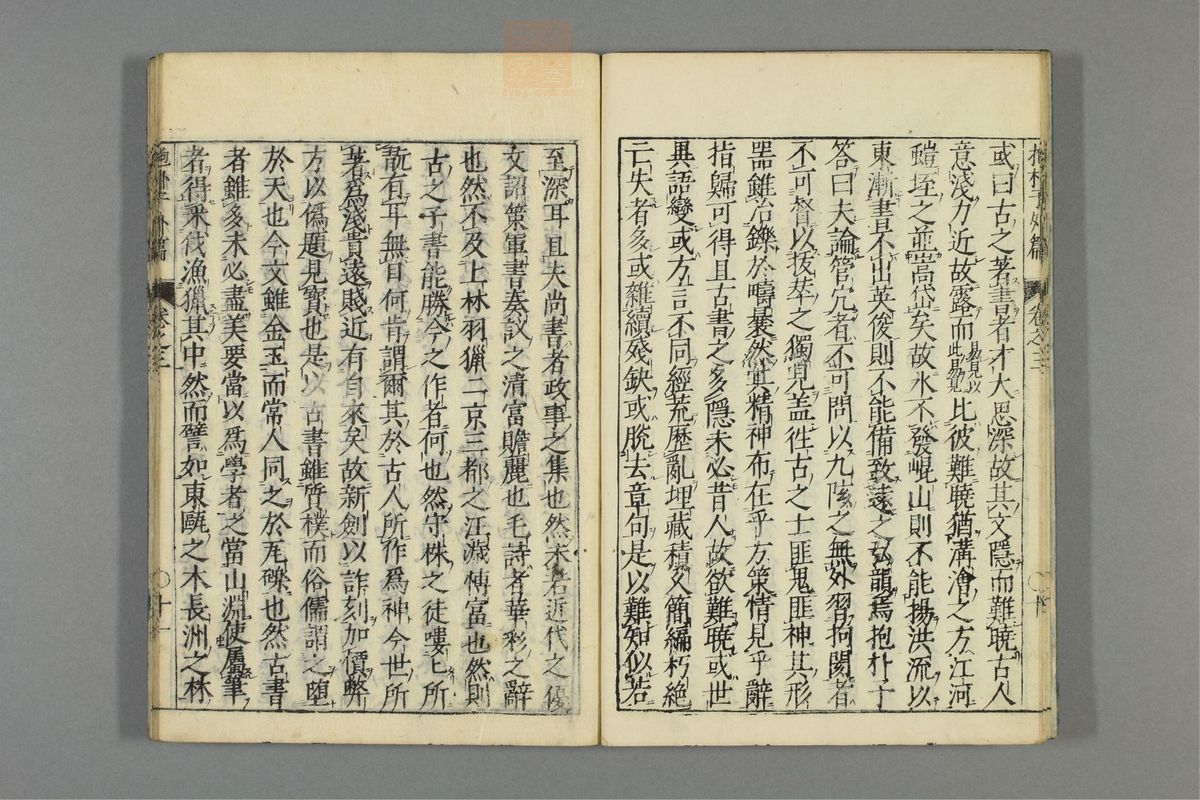 抱朴子外篇 卷之三 〇十
或曰古之著書者才大思深故其文隱而難曉古人
意淺力近故露而易見以此易見比彼難曉猶溝澮之方江河
螘垤之並嵩岱矣故水不發崐山則不能揚洪流以
東漸書不出英俊則不能備致遠之弘韻焉抱朴子
答曰夫論管穴者不可問以九陔之無外習拘閡者
不可督以拔萃之獨見盖徃古之士匪鬼匪神其形
噐雖冶鑠於疇曩然其精神布在乎方策情見乎辭
指歸可得且古書之多隱未必昔人故欲難曉或世
異語變或方言不同經荒歷亂埋藏積乆簡編朽絶
亡失者多或雜續殘缺或脫去章句是以難知似若
至深耳且夫尚書者政事之集也然未若近代之優
文詔策軍書奏議之清富贍麗也毛詩者華彩之辭
也然不及上林羽獵二京三都之汪濊博富也然則
古之子書能勝今之作者何也然守株之徒嘍嘍所
翫有耳無目何肯謂爾其於古人所作爲神今世所
著爲淺貴遠賤近有自來矣故新劍以詐刻加價弊
方以僞題見寳也是以古書雖質樸而俗儒謂之墮
於天也今文雖金玉而常人同之於瓦礫也然古書
者雖多未必盡美要當以爲學者之當山淵使屬筆
者得采伐漁獵其中然而譬如東甌之木長洲之林
抱朴子外篇 卷之三 〇十一